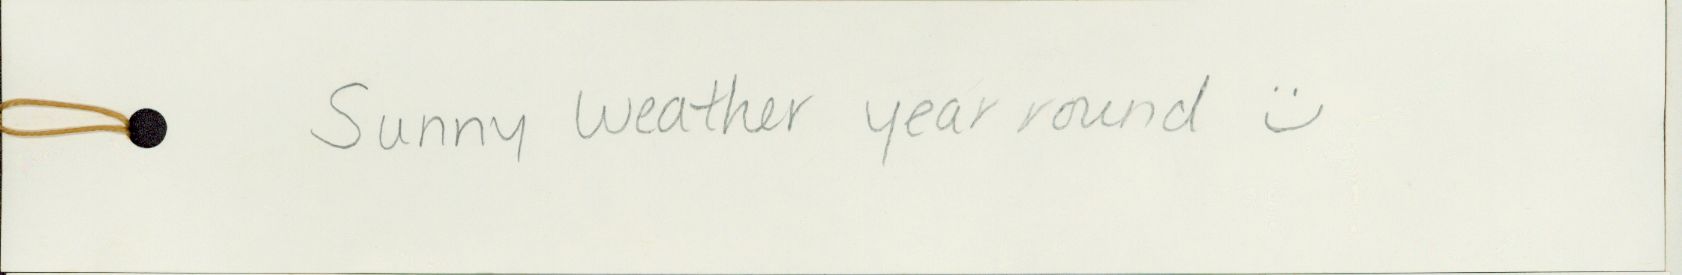 Sunny weather year round :)